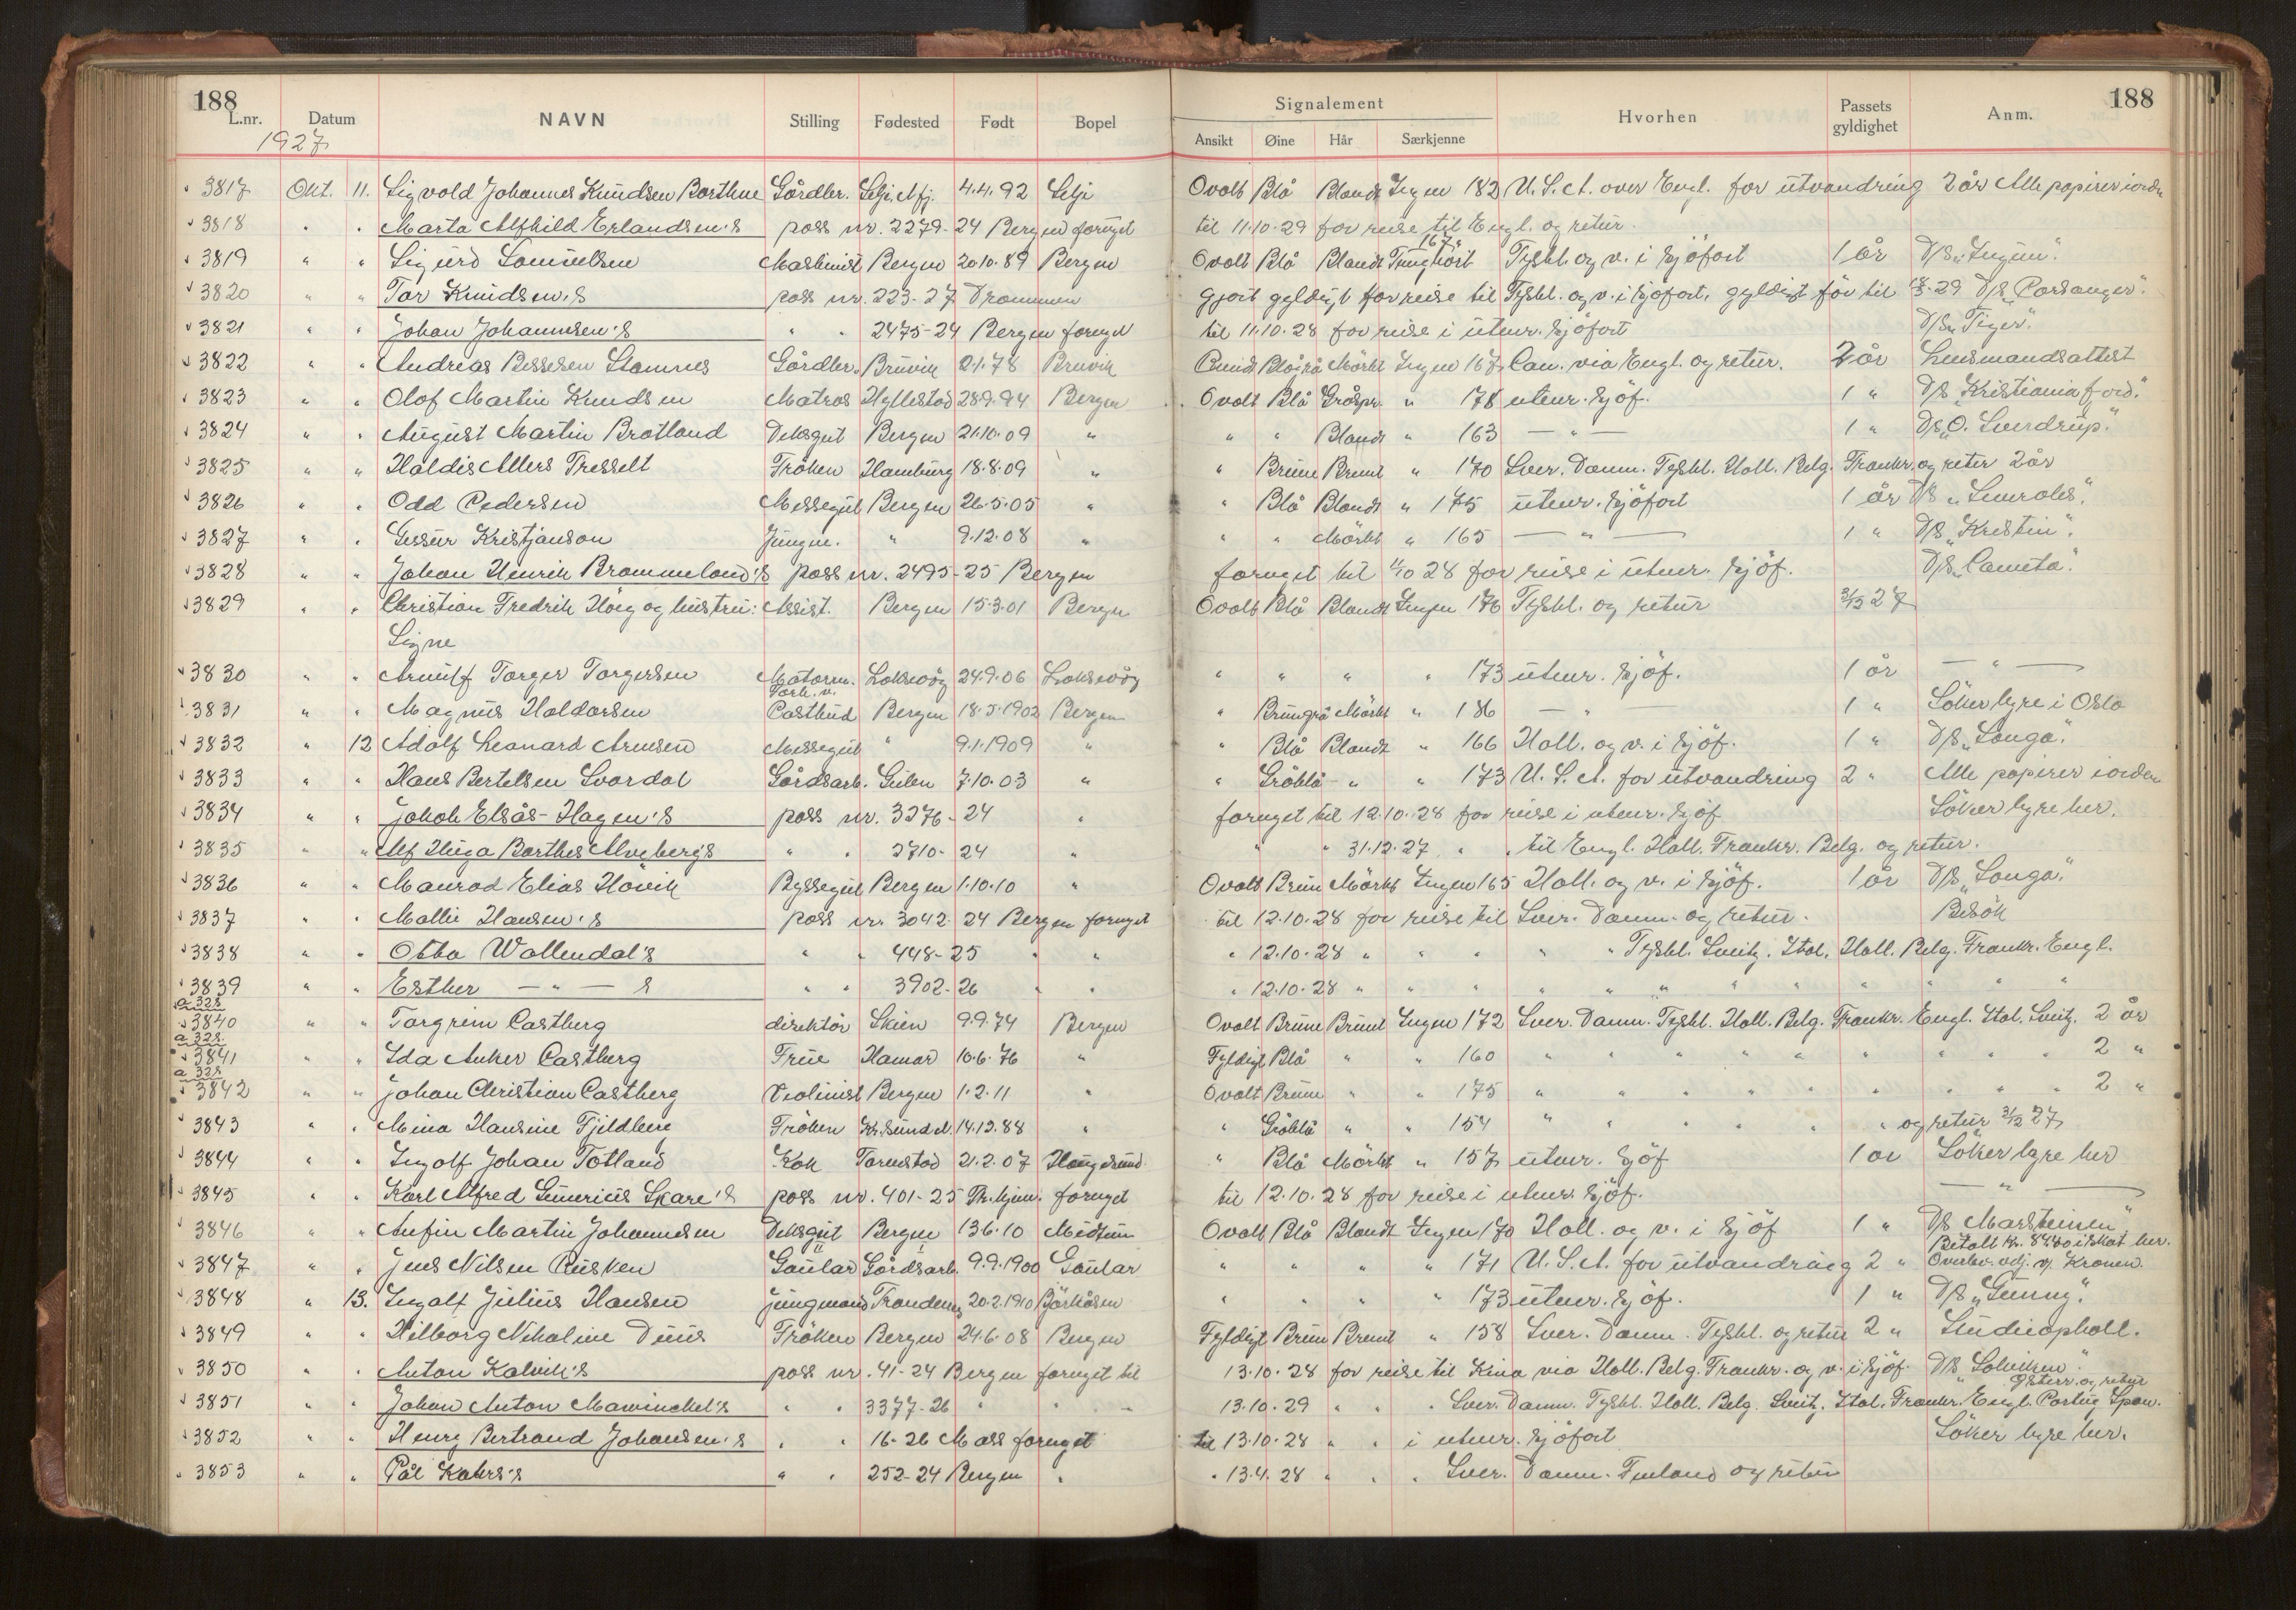 188 188
L.nr. Datum NAVN Stilling Fødested Født Bopel Signalement Ansikt Øine Hår Særkjenne Hvorhen Passets gyldighet Anm.
1927
3817 Okt. 11. Sigvold Johannes Knudsen Gårdbr. Selje, Nfj. 4.4.92 Selje Ovalt Blå Blondt Ingen 182 U.S.A. over Engl. for utvandring 2 år Alle papirer i orden
3818 " " Marta Alfhild Erlandsen's pass nr. 2279-24 Bergen fornyet til 11.10.29 for reise til Engl. og retur.
3819 " " Sigurd Samuelsen Maskinist Bergen 20.10.89 Bergen Ovalt Blå Blondt Tunghørt 167 Tyskl. og v. i sjöfart 1 år D/S „Ingun".
3820 " " Tor Knudsen's pass nr. 223-27 Drammen gjort gyldigt for reise til Tyskl. og v. i sjöfart, gyldigt før til D/S „Porsanger".
3821 " " Johan Johannesen's " " 2475-24 Bergen fornyet til 11.10.28 for reise i utenr. sjöfart D/S „Tiger".
3822 " " Andreas Bessesen Stamnes Gårdbr. Bruvik 2.1.78 Bruvik Rund Blågrå Mörkt Ingen 167 Can. via Engl. og retur. 2 år Lensmandsattest
3823 " " Olof Martin Knudsen Matros Hyllestad 28.9.94 Bergen Ovalt Blå Gråspr. " 178 utenr. sjöf. 1 " D/S „Kristianiafjord."
3824 " " August Martin Brotland Deksgut Bergen 21.10.09 " " " Blondt " 163 — " — 1 " D/S „O. Sverdrup."
3825 " " Haldis Allers Tresselt Fröken Hamburg 18.8.09 " " Brune Brunt " 170 Sver. Danm. Tyskl. Holl. Belg. Frankr. og retur 2 år
3826 " " Odd Pedersen Messegut Bergen 26.5.05 " " Blå Blondt " 175 utenr. sjöfart 1 år D/S
3827 " " Gissur Kristjanson Jungm. " 9.12.08 " " " Mörkt " 165 — " — 1 " D/S „Kristin".
3828 " " Johan Henrik Brommeland's pass nr. 2495-25 Bergen fornyet til 11/10 28 for reise i utenr. sjöf. D/S „Cometa".
3829 " " Christian Fredrik Höeg og hustru: Assist. Bergen 15.3.01 Bergen Ovalt Blå Blondt Ingen 176 Tyskl. og retur 31/12 27
Signe
3830 " " Arnulf Torger Torgersen Motorm. Laksevåg 24.9.06 Laksevåg " " " " 173 utenr. sjöf. 1 år — " —
3831 " " Magnus Haldorsen Postbud Bergen 18.5.1902 Bergen " Brungrå Mörkt " 186 — " 1 " Söker hyre i Oslo
3832 " 12 Adolf Leonard Arnesen Messegut " 9.1.1909 " " Blå Blondt " 166 Holl. og v. i sjöf. 1 " D/S „Songa".
3833 " " Hans Bertelsen Svardal Gårdsarb. Gulen 7.10.03 " " Gråblå " " 173 U.S.A. for utvandring 2 " Alle papirer i orden
3834 " " Jakob Elsås-Hagen's pass nr. 3276-24 " fornyet til 12.10.28 for reise i utenr. sjöf. Söker hyre her.
3835 " " Alf Hugo Barthes Alveberg's " " 2710-24 " " " 31.12.27 " " til Engl. Holl. Frankr. Belg. og retur.
3836 " " Manrad Elias Hövik Byssegut Bergen 1.10.10 " Ovalt Brun Mörkt Ingen 165 Holl. og v. i sjöf. 1 år D/S „Songa".
3837 " " Mollie Hansen's pass nr. 3042-24 Bergen fornyet til 12.10.28 for reise til Sver. Danm. og retur. Besök
3838 " " Otto Wallendal's " " 448-25 " " " 12.10.28 " " " " " Tyskl. Sveitz. Ital. Holl. Belg. Frankr. Engl.
3839 " " Esther — " — s " " 3902-26 " " " 12.10.28 " " " " " " " " " " "
a 328
3840 " " Torgrim Castberg direktör Skien 9.9.74 Bergen Ovalt Brune Brunt Ingen 172 Sver. Danm. Tyskl. Holl. Belg. Frankr. Engl. Ital. Sveitz. 2 år
a 328
3841 " " Ida Anker Castberg Frue Hamar 10.6.76 " Fyldigt Blå " " 160 " " " " " " " " " 2 "
a 328
3842 " " Johan Christian Castberg Violinist Bergen 1.2.11 " Ovalt Brune " " 175 " " " " " " " " " 2 "
3843 " " Mina Hansine Fjeldberg Fröken Kr.sund N. 14.12.88 " " Gråblå " " 154 " " " " " " og retur 31/12 27
3844 " " Ingolf Johan Totland Kok Tornstad 21.2.07 Haugesund " Blå Mörkt " 157 utenr. sjöf 1 år Söker hyre her
3845 " " Karl Alfred Gunerius Skare's pass nr. 401-25 Tr.hjem. fornyet til 12.10.28 for reise i utenr. sjöf. — " —
3846 " " Anfin Martin Johannesen Deksgut Bergen 13.6.10 Midtun Ovalt Blå Blondt Ingen 170 Holl. og v. i sjöf 1 " D/S Marsteinen"
3847 " " Jens Nilsen Rusken Gaular Gårdsarb. 9.9.1900 Gaular " " " " 171 U.S.A. for utvandring 2 " Betalt kr. 84.80 i skat her. Overbev. adj. v/ Kronen.
3848 " 13. Ingolf Julius Hansen jungmand Trondenes 20.2.1910 Björkåsen " " " " 173 utenr. sjöf. 1 " D/S „Gunny".
3849 " " Hilborg Nikoline Duus Fröken Bergen 24.6.08 Bergen Fyldigt Brun Brunt " 158 Sver. Danm. Tyskl. og retur 2 " Studieophold.
3850 " " Anton Kalvik's pass nr. 41-24 Bergen fornyet til 13.10.28 for reise til Kina via Holl. Belg. Frankr. og v. i sjöf. D/S
3851 " " Johan Anton Mowinckel's " " 3377-26 " " " 13.10.29 " " " Sver. Danm. Tyskl. Holl. Belg. Sveitz. Ital. Frankr. Engl. Portug. Span. Østerr. og retur
3852 " " Henry Bertrand Johansen's " " 16-26 Moss fornyet til 13.10.28 " " i utenr. sjöfart Söker hyre her.
3853 " " Pål Kahrs's " " 252-24 Bergen " " 13.4.28 " " " Sver. Danm. Finland og retur